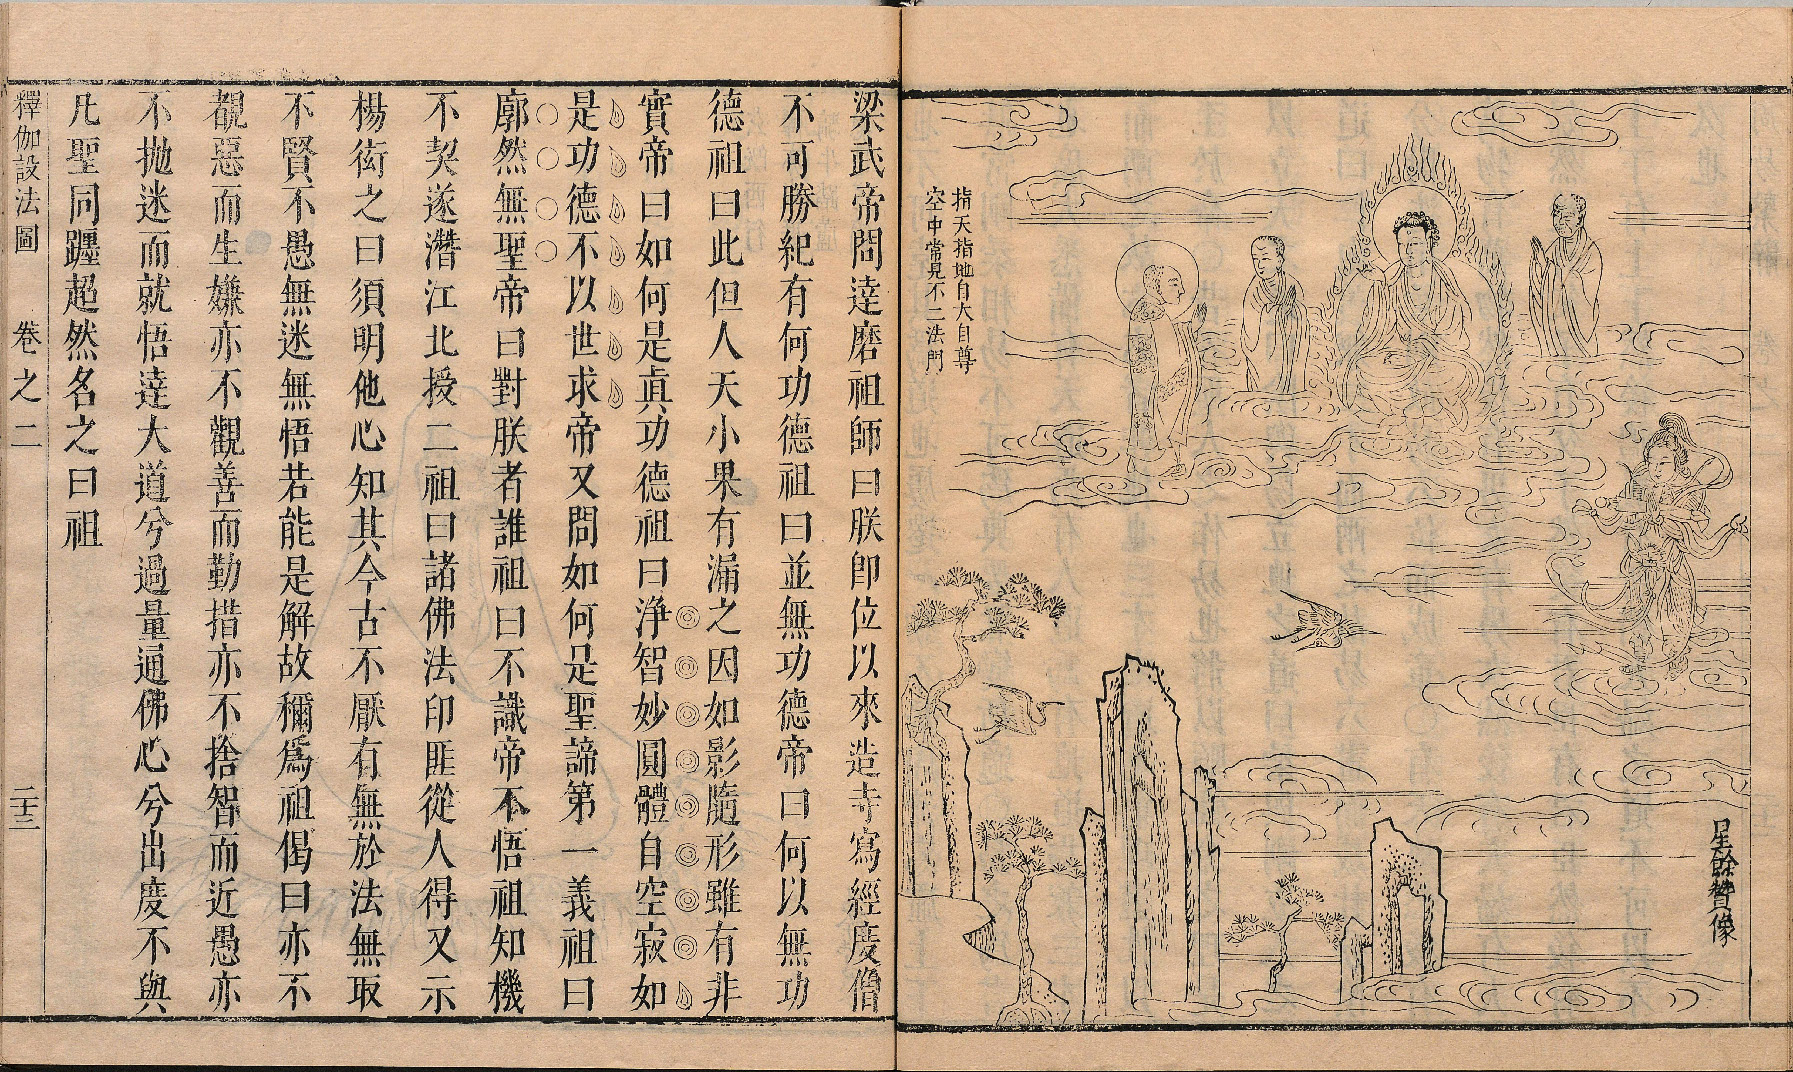 指天指地自大自尊
空中常見不二法門
星餘贊像
梁武帝問達磨祖師曰朕卽位以來造寺寫經度僧
不可勝紀有何功德祖曰並無功德帝曰何以無功
德祖曰此但人天小果有漏之因如影隨形雖有非
實帝曰如何是眞功德祖曰淨智妙圓體自空寂如
是功德不以世求帝又問如何是聖諦第一義祖曰
廓然無聖帝曰對朕者誰祖曰不識帝不悟祖知機
不契遂潛江北授二祖曰諸佛法印匪從人得又示
楊衒之曰須明他心知其今古不厭有無於法無取
不賢不愚無迷無悟若能是解故稱爲祖偈曰亦不
覩惡而生嫌亦不觀善而勤措亦不捨智而近愚亦
不拋迷而就悟達大道兮過量通佛心兮出度不與
凡聖同躔超然名之曰祖
釋伽設法圖 卷之二 二十三